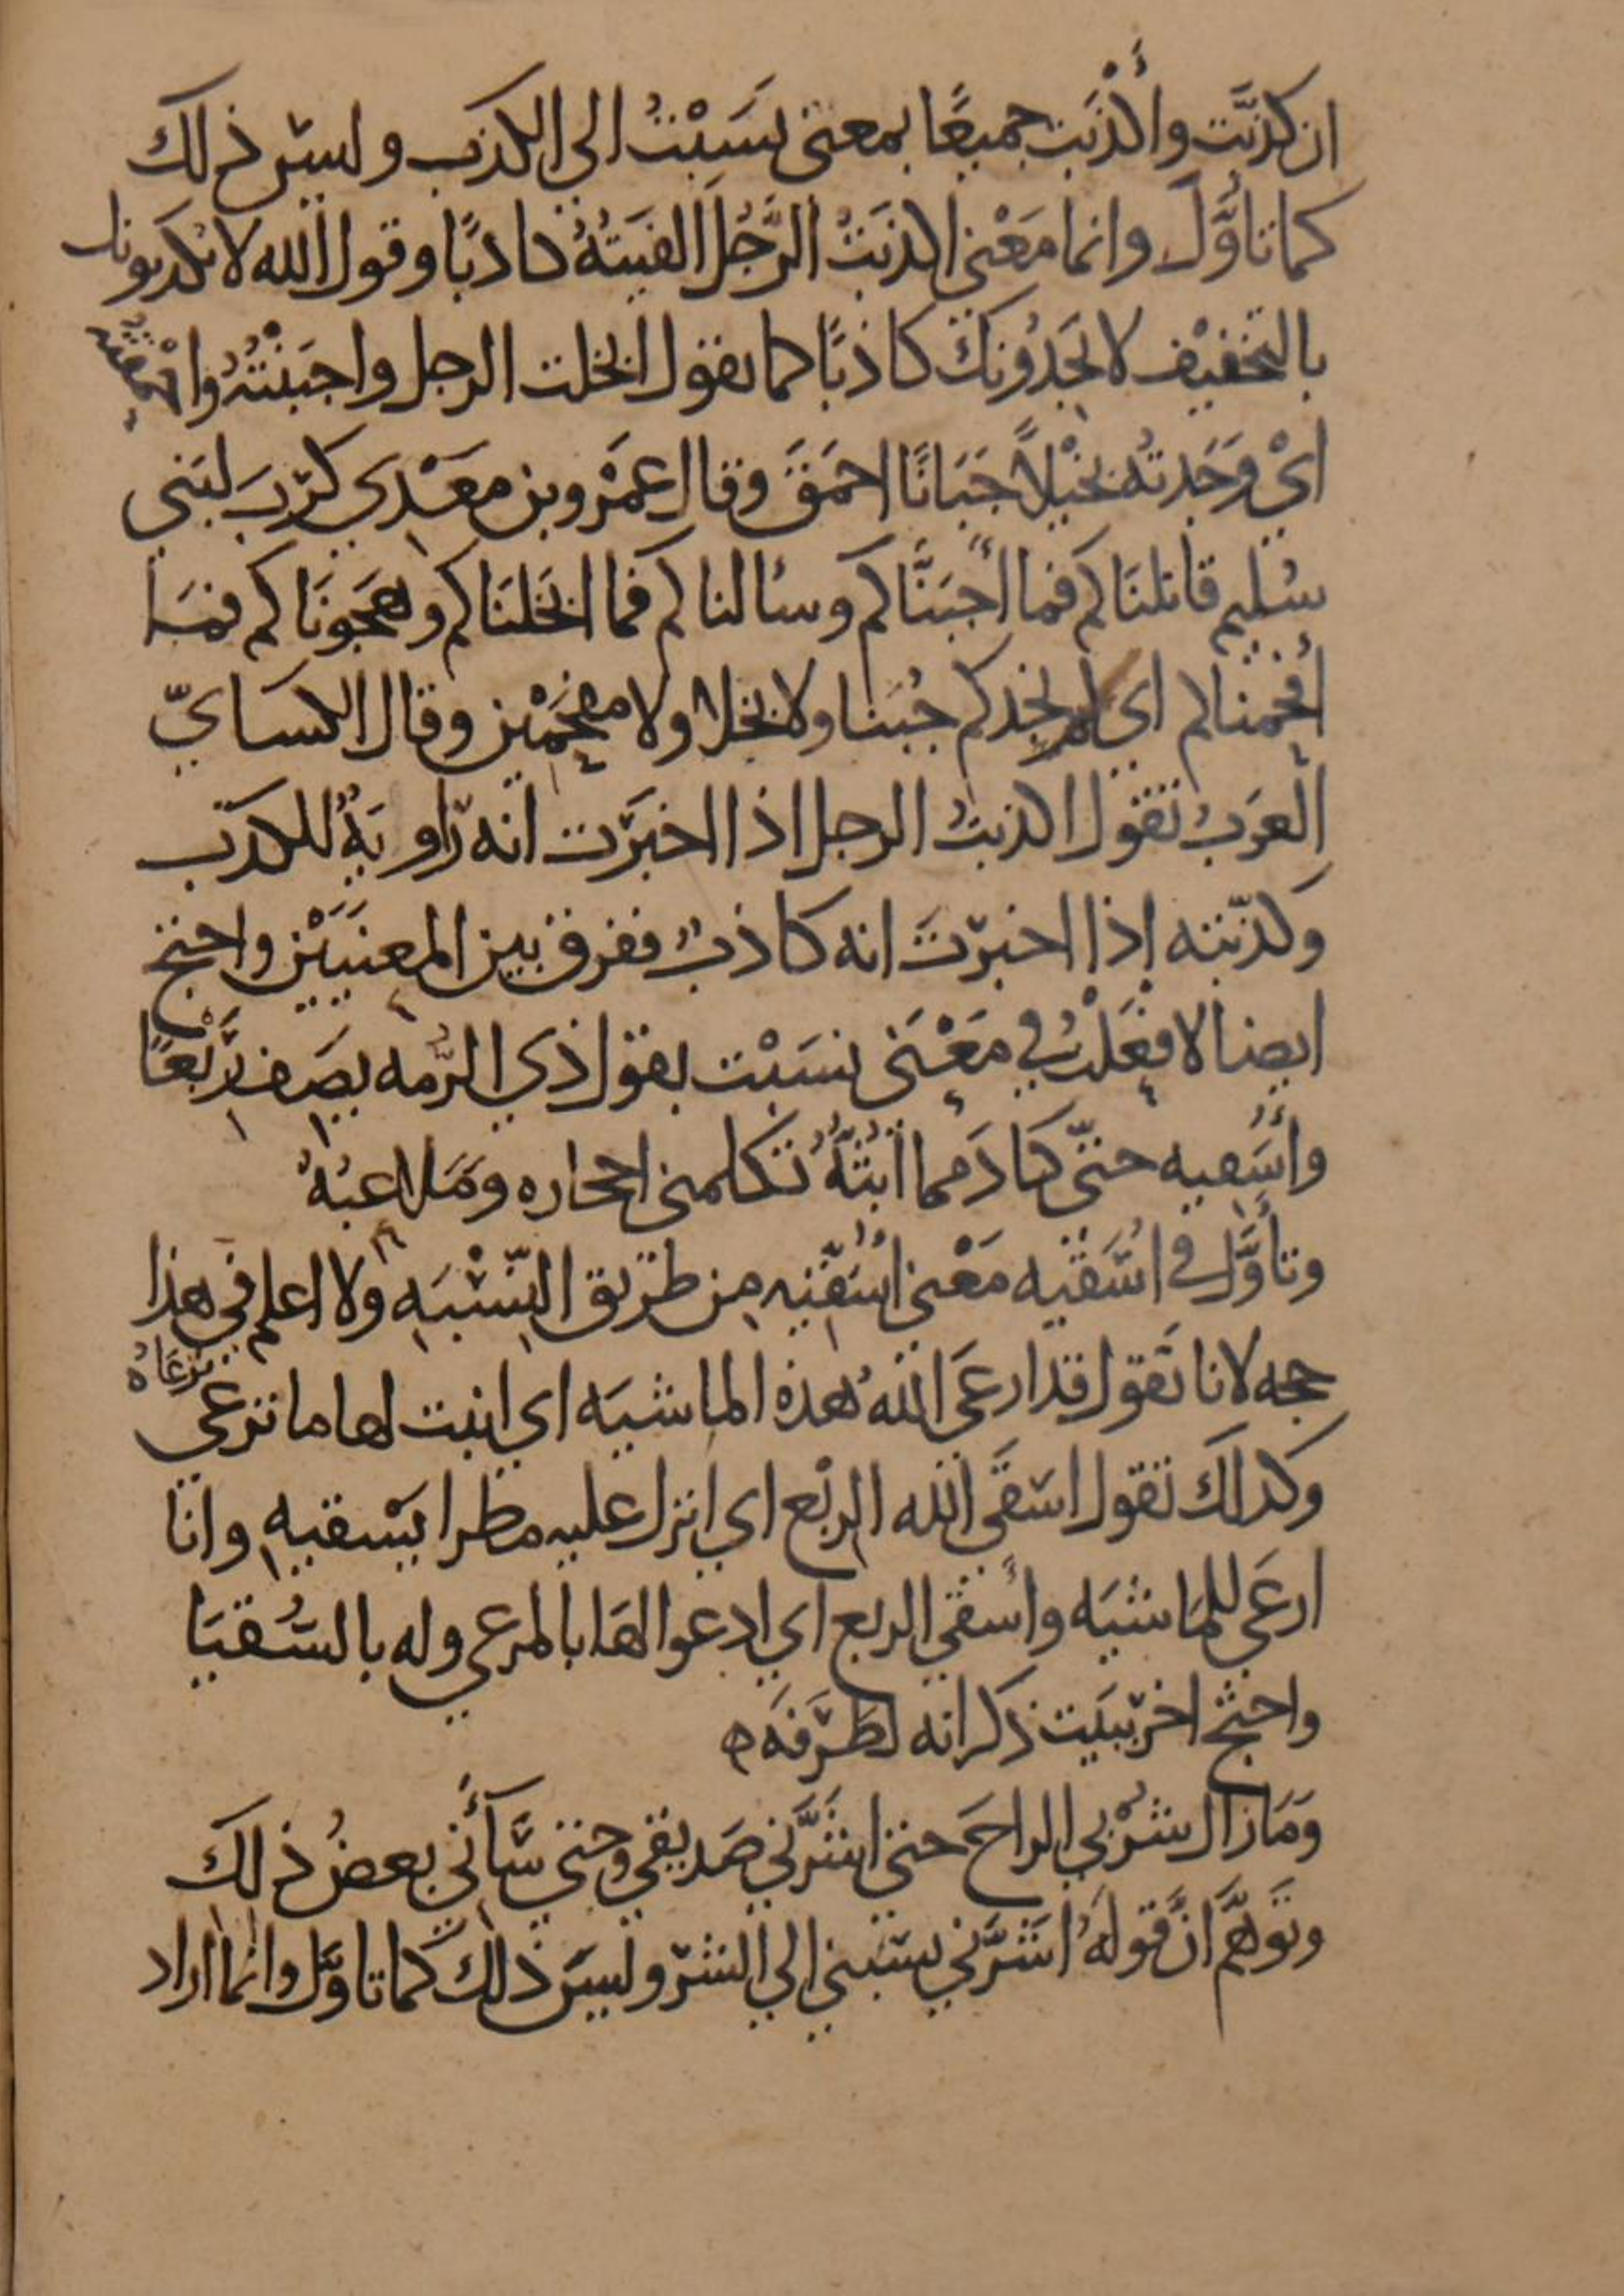 ان كذبَّت وأكْذَبت جميعًا بمعنى نسَبْتُ الى الكذب وليس ذلك
كما تاوَّلَ وانما مَعْنى اكذبَتُ الرَّجُلَ الفيتهُ كاذبًا وقول الله لا يكذبونك
بالتخفيْف لا يَجدُونكَ كاذبًا كما تقول ابخلت الرجل واجبَنْتُهُ واحْمقته
ايْ وَجَدتُه بخيْلاً جَبَانًا احمَقَ وقال عمْرو بن معَدي كرِبَ لبَني
سُليم قاتلنَاكم فما أجبَنَّاكم وسألناكم فما ابخَلنَاكم وهَجَونَاكم فمَا
أفحَمْناكم اي لم نجدكم جُبَنا ولا بخلا ولا مفحَمْين وقال الكسايّ
العرَبُ تقول اكذبتُ الرجل اذا اخبَرَت انه رَاويَةٌ للكذب
وكذّبته إذا اخبرْتَ انه كاذبٌ ففرق بين المعنيَيْن واحتج
ايضا لافعَلْتُ في مَعْنَى نسَبْت بقول ذي الرُّمه يصَف رَبْعًا
وأُسَقيه حتّى كادَ مما أبُثّهُ تكلمنى احجاره وَمَلاعبُهُ
وتأوَّل في اسَقيه مَعْنى اُسَقّيه من طريق النّسْبَه ولا اعلم في هذا
حجه لانا نَقول قد ارعَى اللهُ هذه الماشيَه اي انبت لها ما ترعى تَرعَاهُ
وكذلك تقول اسقَى الله الربْع اي انزل عليه مطرا يَسْقيه وانا
ارعَى للماشيَه وأسقي الربع اي ادعوا لهَا بالمرعي وله بالسُّقيَا
واحتج اخر ببَيت ذكر انه لطَرَفَه ه
وَمَا زال شُرْبي الراحَ حتى اشَرَّني صَديقي وحتى سَآءَني بعضُ ذلك
وتوَهَّم انَّ قولهُ اشَرَّني نسَبني الي الشر وليسَ ذلك كما تاوَّل وانما اراد